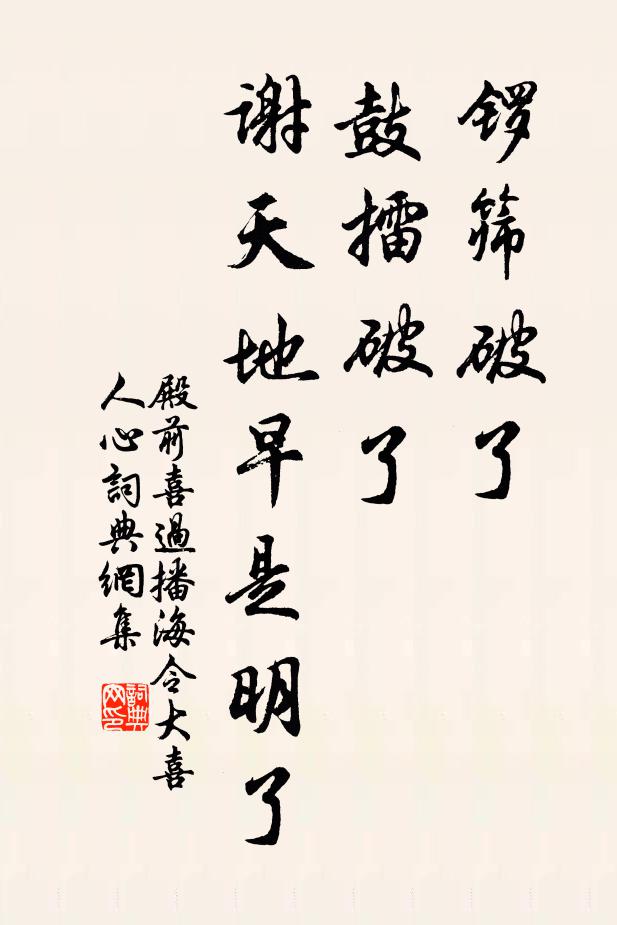 锣筛破了
鼓擂破了
谢天地早是明了
殿前喜過播海令大喜
人心詞典網集
詞典网印